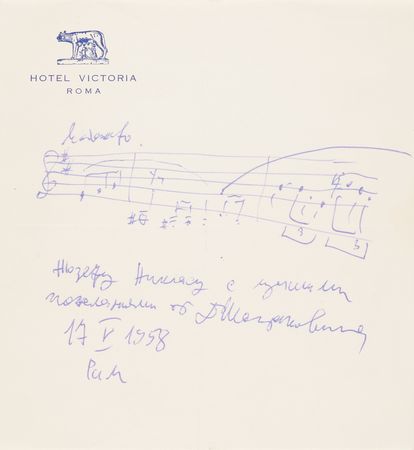 HOTEL VICTORIA
ROMA
Moderato
3
3
Жозефу Никласу с лучшими
пожеланиями от ДШостаковича
17 V 1958
Рим